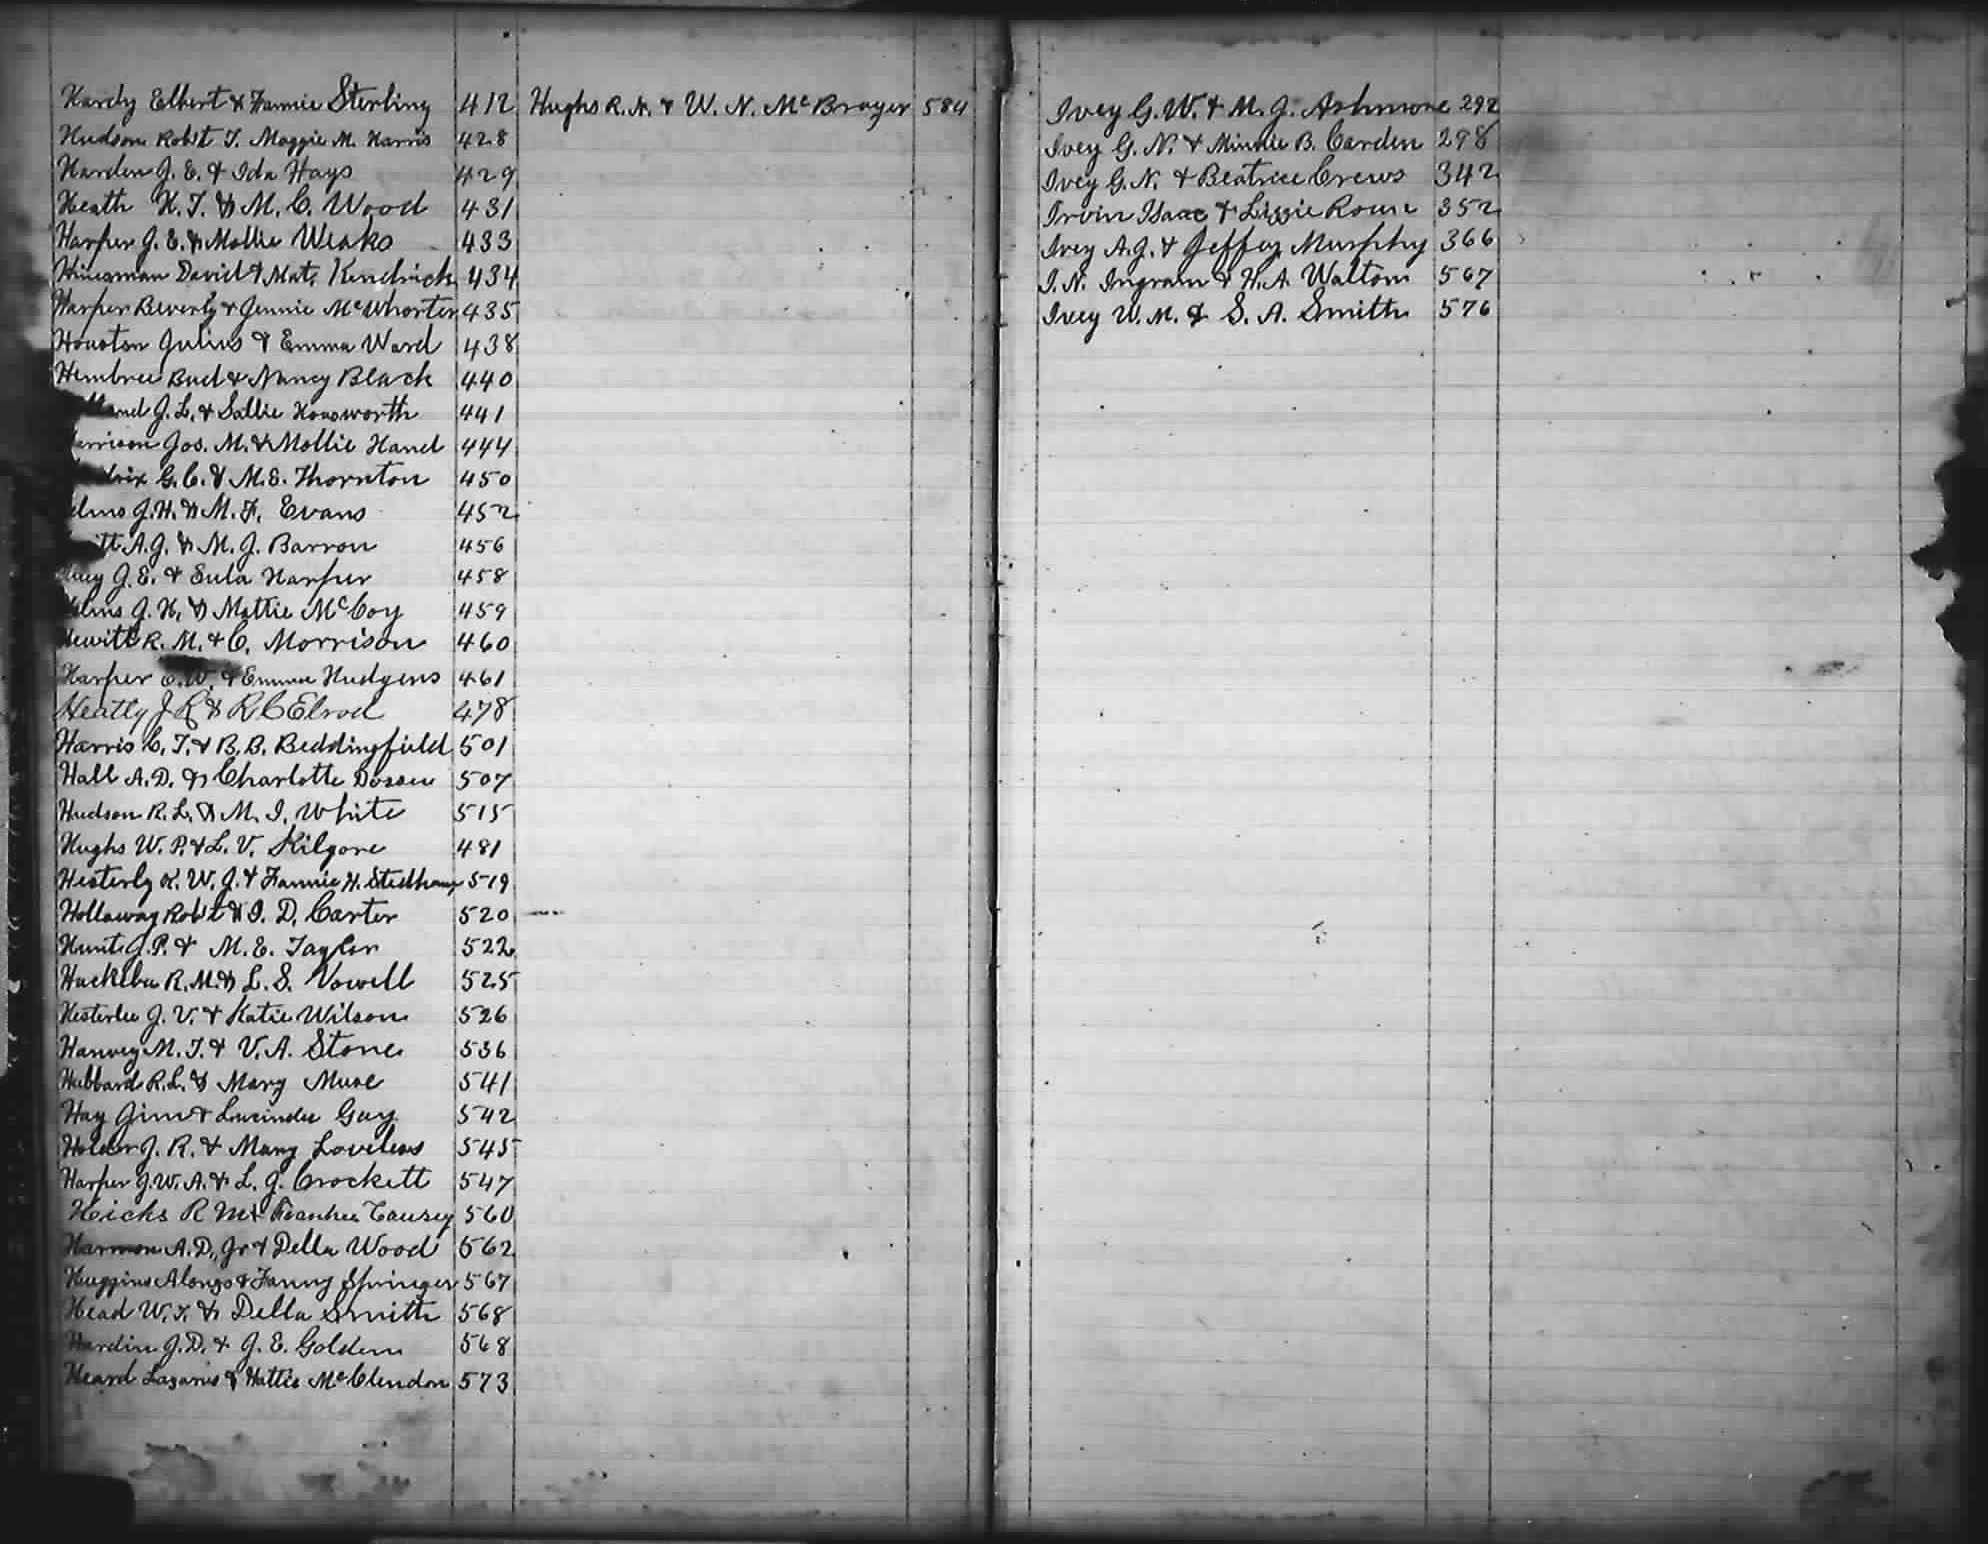 Hardy Elbert & Fannie Sterling 412
Hudson Robt T. Maggie M. Harris 428
Harden J. E. & Ida Hays 429
Heath H. T. & M. C. Wood 431
Harper J. E. & Mollie Weaks 433
Hinesman David & Mat. Kendrick 434
Harper Beverly & Jennie McWhorter 435
Houston Julius & Emma Ward 438
Hembree Bud & Nancy Black 440
and J. L. & Sallie Housworth 441
arrison Jos. M. & Mollie Hand 444
drix G. C. & M. E. Thornton 450
elms J. H. & M. F. Evans 452
itt A. J. & M. J. Barron 456
J. E. & Eula Harper 458
elms J. H. & Mattie McCoy 459
Hewitt R. M. & C. Morrison 460
Harper E. W. & Emma Hudgens 461
Heatly J R & R C Elrod 478
Harris C. T. & B. B. Beddingfield 501
Hall A. D. & Charlotte 507
Hudson R. L. & M. I. White 515
Hughs W. P. & L. V. Kilgore 481
Hesterly K. W. J. & Fannie H. Stedham 519
Hollaway Robt & I. D. Carter 520
Hunt J. P. & M. E. Taylor 522
Huckeba R. M. & L. S. Vowell 525
Hesterlee J. V. & Katie Wilson 526
Hanvey M. T. & V. A. Stone 536
Hubbard R. L. & Mary Muse 541
Hay Jim & Lucinda Gay 542
Holder J. R. & Mary Loveless 545
Harper J. W. A. & L. J. Crockett 547
Hicks R M & Causey 560
Harmon A. D., Jr & Della Wood 562
Huggins Alonzo & Fanny Springer 567
Head W. T. & Della Smith 568
Hardin J. D. & J. E. Golden 568
Heard Lazarus & Hattie McClendon 573
Hughs R. H. & W. N. McBrayer 584
Ivey G. W. & M. J. Ashmore 292
Ivey G. N. & Minnie B. Carden 298
Ivey G. N. & Beatrice Crews 342
Irvin Isaac & Lizzie Rouse 352
Ivey A. J. & Jeffey Murphy 366
I. N. Ingram & H. A. Walton 567
Ivey W. M. & S. A. Smith 576